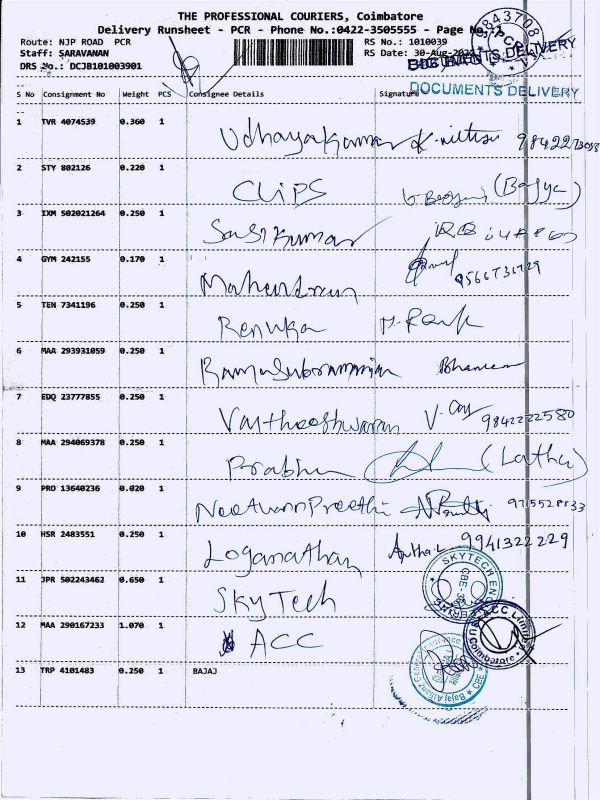 THE PROFESSIONAL COURIERS, Coimbatore
Delivery Runsheet - PCR - Phone No.:0422-3505555 - Page No.:
Route: NJP ROAD PCR RS No.: 1010039
Staff: SARAVANAN RS Date: 30-Aug-
DRS No.: DCJB101003901
DOCUMENTS DELIVERY
S No Consignment No Weight PCS Consignee Details Signature
DOCUMENTS DELIVERY
1 TVR 4074539 0.360 1 Udhayakumar
2 STY 802126 0.220 1 CLIPS (Bagya)
3 IXM 502021264 0.250 1 Sasikumar
4 GYM 242155 0.170 1 Mahendran
5 TEN 7341196 0.250 1 Renuka
6 MAA 293931059 0.250 1 Ramasubramanian
7 EDQ 23777855 0.250 1 Vaitheeshwaran 9842222580
8 MAA 294069378 0.250 1 Prabhu (Latha)
9 PRO 13640236 0.020 1 NeetuannPreethi
10 HSR 2483551 0.250 1 Loganathan 9941322229
11 JPR 502243462 0.650 1 Sky Tech
SKYTECH ENGINEERING
CBE
12 MAA 290167233 1.070 1 ACC
ACC Limited
Coimbatore
13 TRP 4101483 0.250 1 BAJAJ
Bajaj Allianz General Insurance
CBE